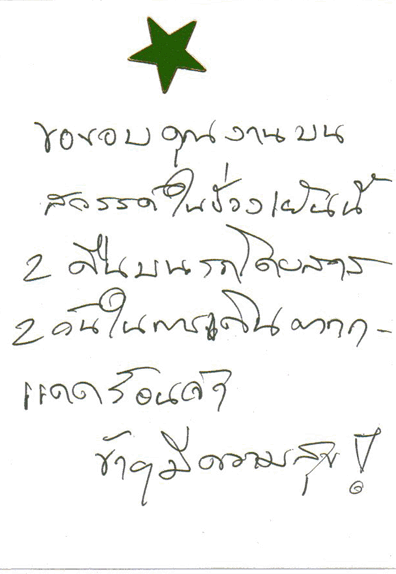 ขอขอบคุณงานบน
สวรรค์ในช่วงเย็นนี้
2 คืนบนรถโดยสาร
2 คืนในการเดินตากก-
แดดร้อนจ้า
ข้าฯมีความสุข!